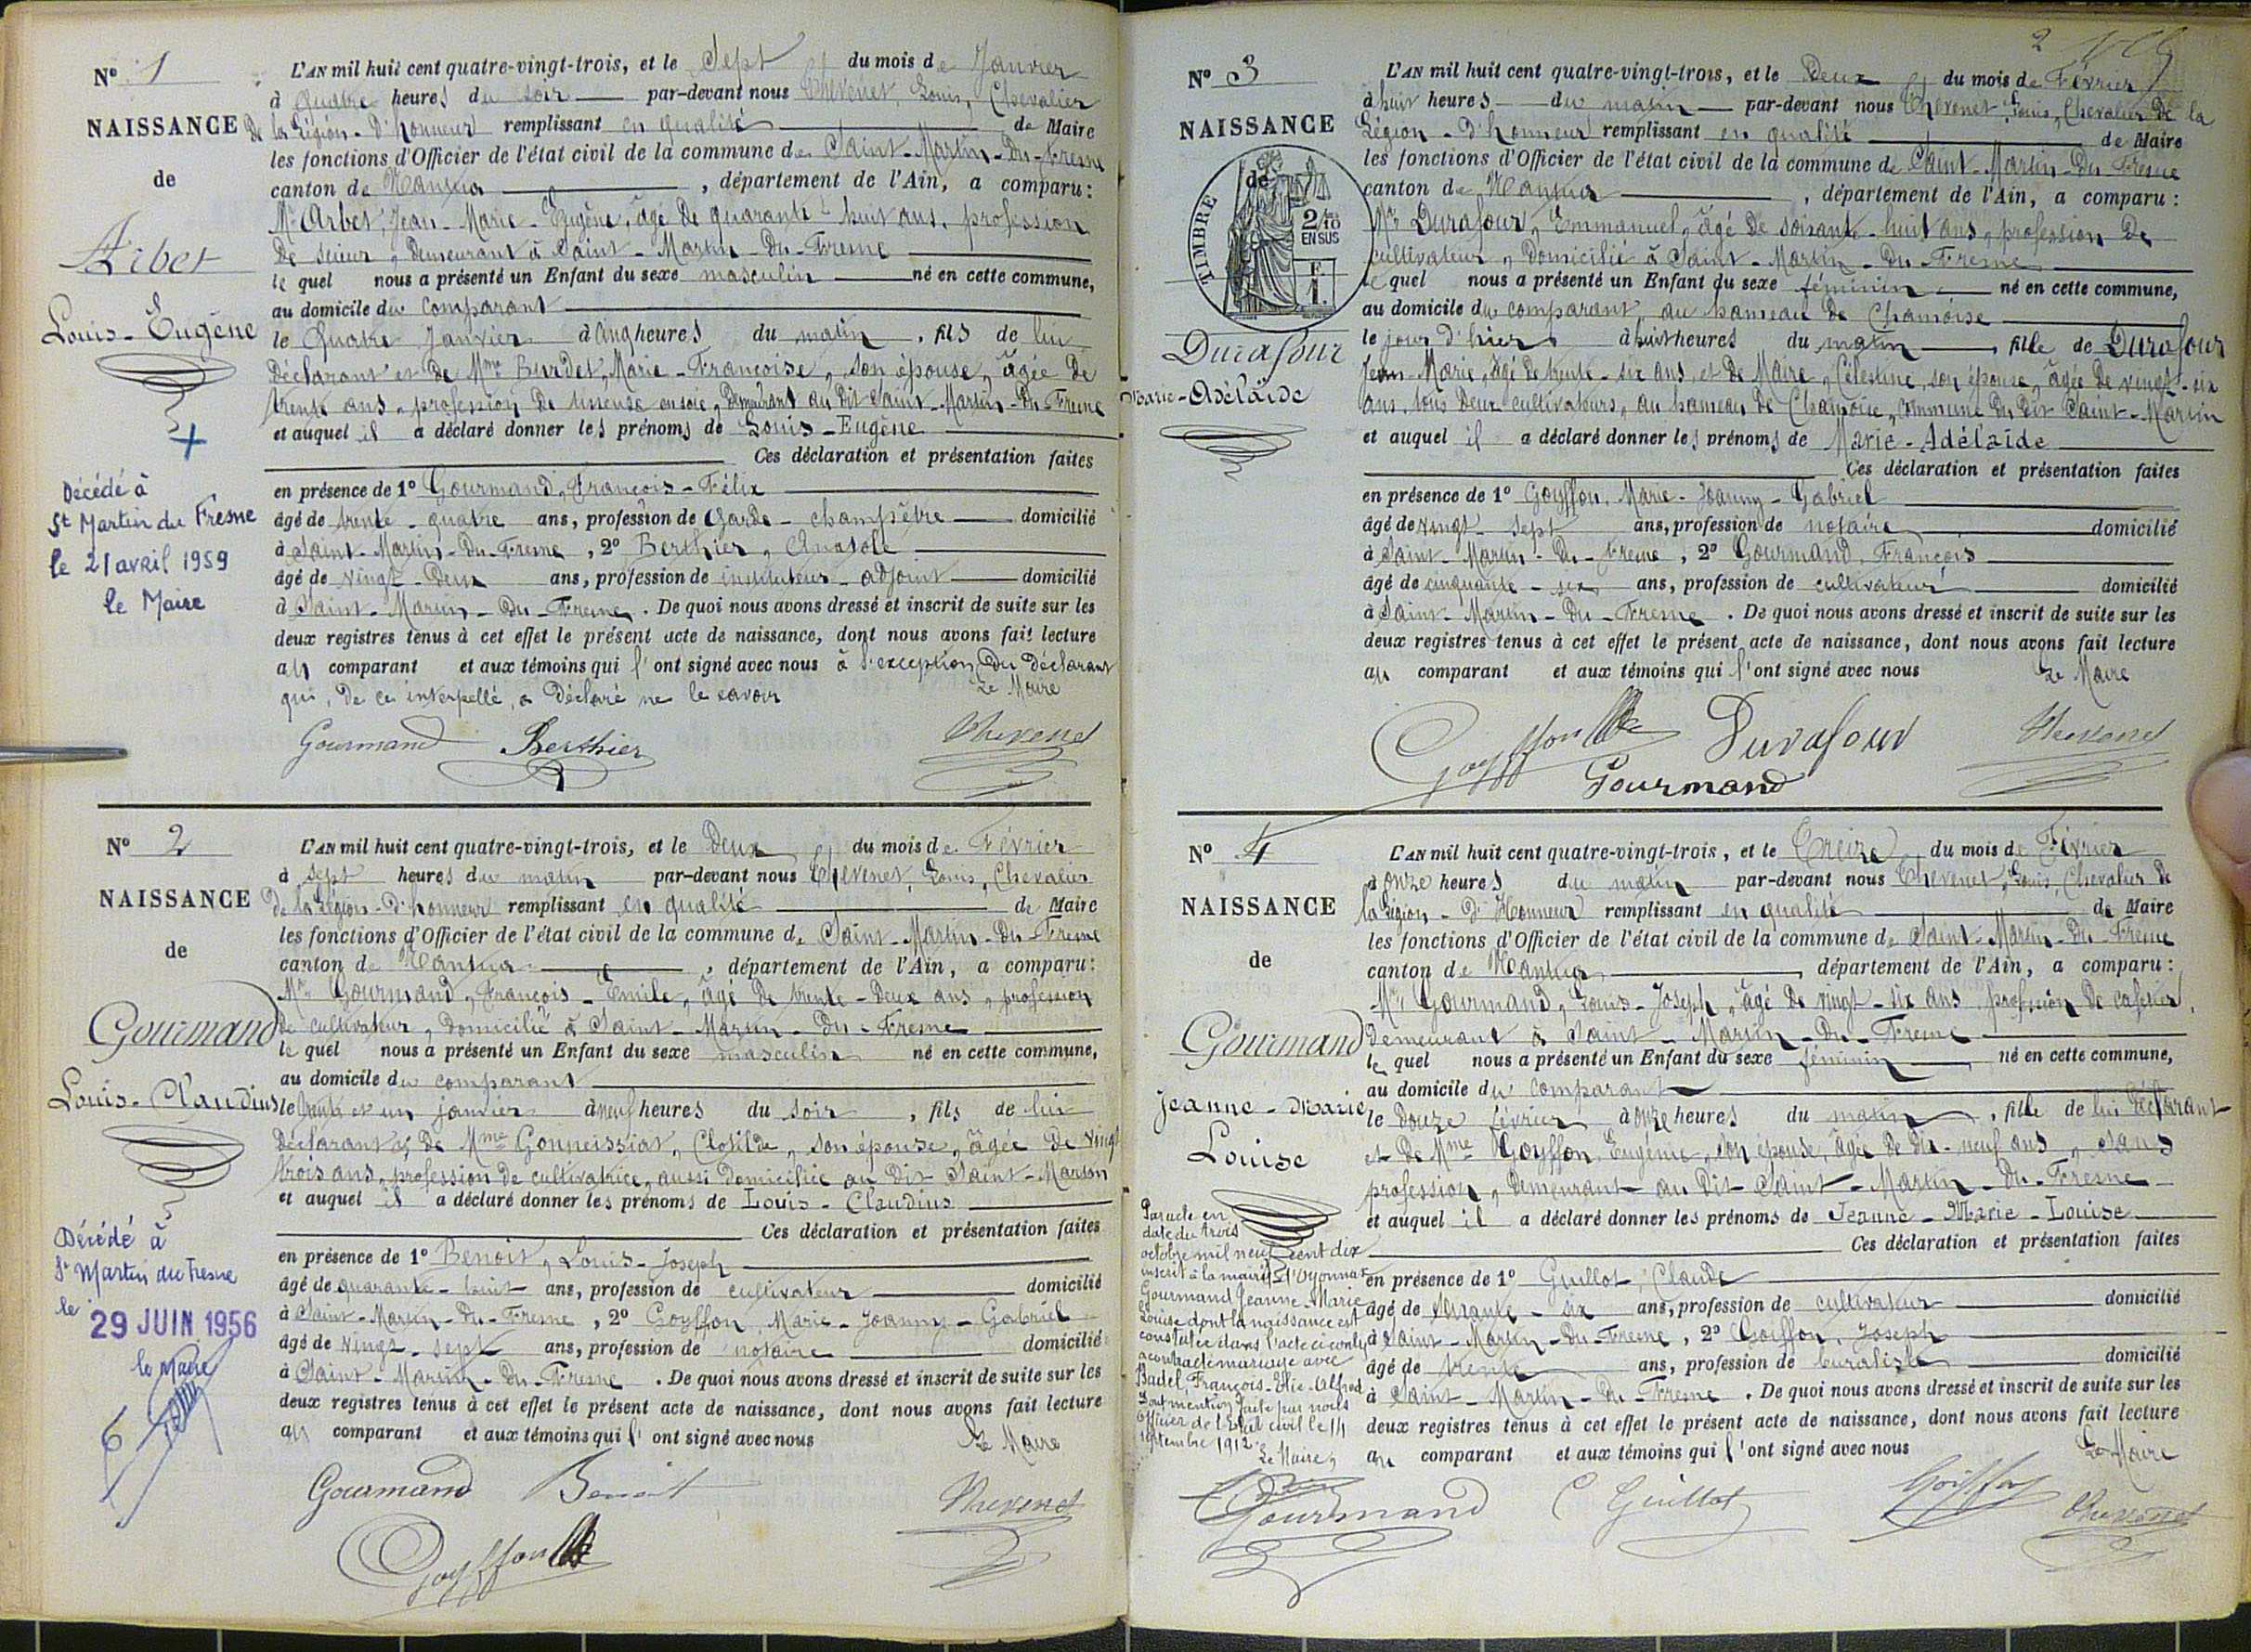 N° 1
NAISSANCE
de
Arbet
Louis-Eugène
Décédé à
St Martin du Fresne
le 21 avril 1959
le Maire
L'AN mil huit cent quatre-vingt-trois, et le Sept du mois de Janvier
à Quatre heures du soir par-devant nous Chevenet, Louis, Chevalier
de la Légion-d'honneur remplissant en qualité de Maire
les fonctions d'Officier de l'état civil de la commune de Saint-Martin-Du-Fresne
canton de Nantua, département de l'Ain, a comparu:
Mr Arbet, Jean-Marie-Eugène, âgé de quarante-huit ans, profession
de scieur, demeurant à Saint-Martin-Du-Fresne
le quel nous a présenté un Enfant du sexe masculin né en cette commune,
au domicile du comparant
le Quatre Janvier à cinq heures du matin, fils de lui
déclarant et de Mme Burdet, Marie-Françoise, son épouse, âgée de
trente ans, profession de tisseuse en soie, demeurant au dit Saint-Martin-Du-Fresne
et auquel il a déclaré donner les prénoms de Louis-Eugène
Ces déclaration et présentation faites
en présence de 1° Gourmand, François-Félix
âgé de trente-quatre ans, profession de Garde-champêtre domicilié
à Saint-Martin-Du-Fresne, 2° Berthier, Anatole
âgé de vingt-deux ans, profession de instituteur-adjoint domicilié
à Saint-Martin-Du-Fresne. De quoi nous avons dressé et inscrit de suite sur les
deux registres tenus à cet effet le présent acte de naissance, dont nous avons fait lecture
au comparant et aux témoins qui l'ont signé avec nous à l'exception du déclarant
qui, de ce interpellé, a déclaré ne le savoir
Le Maire
Gourmand Berthier Chevenet
N° 2
NAISSANCE
de
Gourmand
Louis-Claudius
Décédé à
St Martin du Fresne
le 29 JUIN 1956
le Maire
L'AN mil huit cent quatre-vingt-trois, et le Deux du mois de Février
à sept heures du matin par-devant nous Chevenet, Louis, Chevalier
de la Légion-d'honneur remplissant en qualité de Maire
les fonctions d'Officier de l'état civil de la commune de Saint-Martin-Du-Fresne
canton de Nantua, département de l'Ain, a comparu:
Mr Gourmand, François-Emile, âgé de trente-deux ans, profession
de cultivateur, domicilié à Saint-Martin-Du-Fresne
le quel nous a présenté un Enfant du sexe masculin né en cette commune,
au domicile du comparant
le trente et un janvier à neuf heures du soir, fils de lui
déclarant et de Mme Gonneissiat, Clotilde, son épouse, âgée de vingt
trois ans, profession de cultivatrice, aussi domiciliée au dit Saint-Martin
et auquel il a déclaré donner les prénoms de Louis-Claudius
Ces déclaration et présentation faites
en présence de 1° Benoit, Louis-Joseph
âgé de quarante-huit ans, profession de cultivateur domicilié
à Saint-Martin-Du-Fresne, 2° Goyffon, Marie-Joanny-Gabriel
âgé de vingt-sept ans, profession de notaire domicilié
à Saint-Martin-Du-Fresne. De quoi nous avons dressé et inscrit de suite sur les
deux registres tenus à cet effet le présent acte de naissance, dont nous avons fait lecture
au comparant et aux témoins qui l'ont signé avec nous
Le Maire
Gourmand Benoit Chevenet
Goyffon
2
N° 3
NAISSANCE
de
TIMBRE
2/10
EN SUS
F
1.
Durafour
Marie-Adélaïde
L'AN mil huit cent quatre-vingt-trois, et le Deux du mois de Février
à huit heures du matin par-devant nous Chevenet, Louis, Chevalier de la
Légion-d'honneur remplissant en qualité de Maire
les fonctions d'Officier de l'état civil de la commune de Saint-Martin-Du-Fresne
canton de Nantua, département de l'Ain, a comparu:
Mr Durafour, Emmanuel, âgé de soixante-huit ans, profession de
cultivateur, domicilié à Saint-Martin-Du-Fresne
le quel nous a présenté un Enfant du sexe féminin né en cette commune,
au domicile du comparant, au hameau de Chamoise
le jour d'hier à huit heures du matin, fille de Durafour
Jean-Marie, âgé de trente-six ans, et de Maire, Célestine, son épouse, âgée de vingt-six
ans, tous deux cultivateurs, au hameau de Chamoise, commune du dit Saint-Martin
et auquel il a déclaré donner les prénoms de Marie-Adélaïde
Ces déclaration et présentation faites
en présence de 1° Goyffon, Marie-Joanny-Gabriel
âgé de vingt-sept ans, profession de notaire domicilié
à Saint-Martin-Du-Fresne, 2° Gourmand, François
âgé de cinquante-six ans, profession de cultivateur domicilié
à Saint-Martin-Du-Fresne. De quoi nous avons dressé et inscrit de suite sur les
deux registres tenus à cet effet le présent acte de naissance, dont nous avons fait lecture
au comparant et aux témoins qui l'ont signé avec nous
Le Maire
Goyffon Durafour Chevenet
Gourmand
N° 4
NAISSANCE
de
Gourmand
Jeanne-Marie
Louise
Par acte en
date du trois
octobre mil neuf cent dix
inscrit à la mairie d'Oyonnax
Gourmand Jeanne-Marie
Louise dont la naissance est
constatée dans l'acte ci contre
a contracté mariage avec
Badel, François-Elie-Alfred
Dont mention faite par nous
Officier de l'Etat civil le 14
septembre 1912.
Le Maire,
L'AN mil huit cent quatre-vingt-trois, et le Treize du mois de Février
à onze heures du matin par-devant nous Chevenet, Louis, Chevalier de
la Légion-d'Honneur remplissant en qualité de Maire
les fonctions d'Officier de l'état civil de la commune de Saint-Martin-Du-Fresne
canton de Nantua, département de l'Ain, a comparu:
Mr Gourmand, Louis-Joseph, âgé de vingt-six ans, profession de cafetier,
demeurant à Saint-Martin-Du-Fresne
le quel nous a présenté un Enfant du sexe féminin né en cette commune,
au domicile du comparant
le Douze février à onze heures du matin, fille de lui déclarant
et de Mme Goyffon, Eugénie, son épouse, âgée de dix-neuf ans, sans
profession, demeurant au dit Saint-Martin-Du-Fresne
et auquel il a déclaré donner les prénoms de Jeanne-Marie-Louise
Ces déclaration et présentation faites
en présence de 1° Guillot, Claude
âgé de six ans, profession de cultivateur domicilié
à Saint-Martin-Du-Fresne, 2° Goiffon, Joseph
âgé de trente ans, profession de buraliste domicilié
à Saint-Martin-Du-Fresne. De quoi nous avons dressé et inscrit de suite sur les
deux registres tenus à cet effet le présent acte de naissance, dont nous avons fait lecture
au comparant et aux témoins qui l'ont signé avec nous
Le Maire
Gourmand C Guillot Goiffon Chevenet